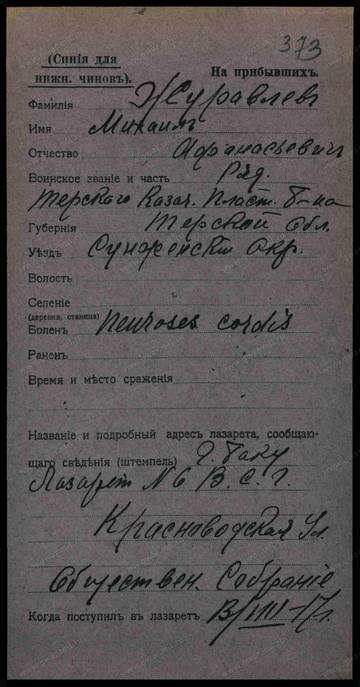 373
(Синія для
нижн. чиновъ).
На прибывшихъ.
Фамилія Журавлевъ
Имя Михаилъ
Отчество Афанасьевич
Воинское званіе и часть Ряд.
Терского Казач. Пласт. б-на
Губернія Терской Обл.
Уѣздъ Сунженскій Окр.
Волость
Селеніе
(деревня, станица)
Боленъ Neuroses cordis
Раненъ
Время и мѣсто сраженія
Названіе и подробный адресъ лазарета, сообщаю-
щаго свѣдѣнія (штемпель) г. Баку
Лазарет № 6 В. С. Г.
Красноводская ул.
Обществен. Собраніе
Когда поступилъ въ лазаретъ /VIII-17 г.